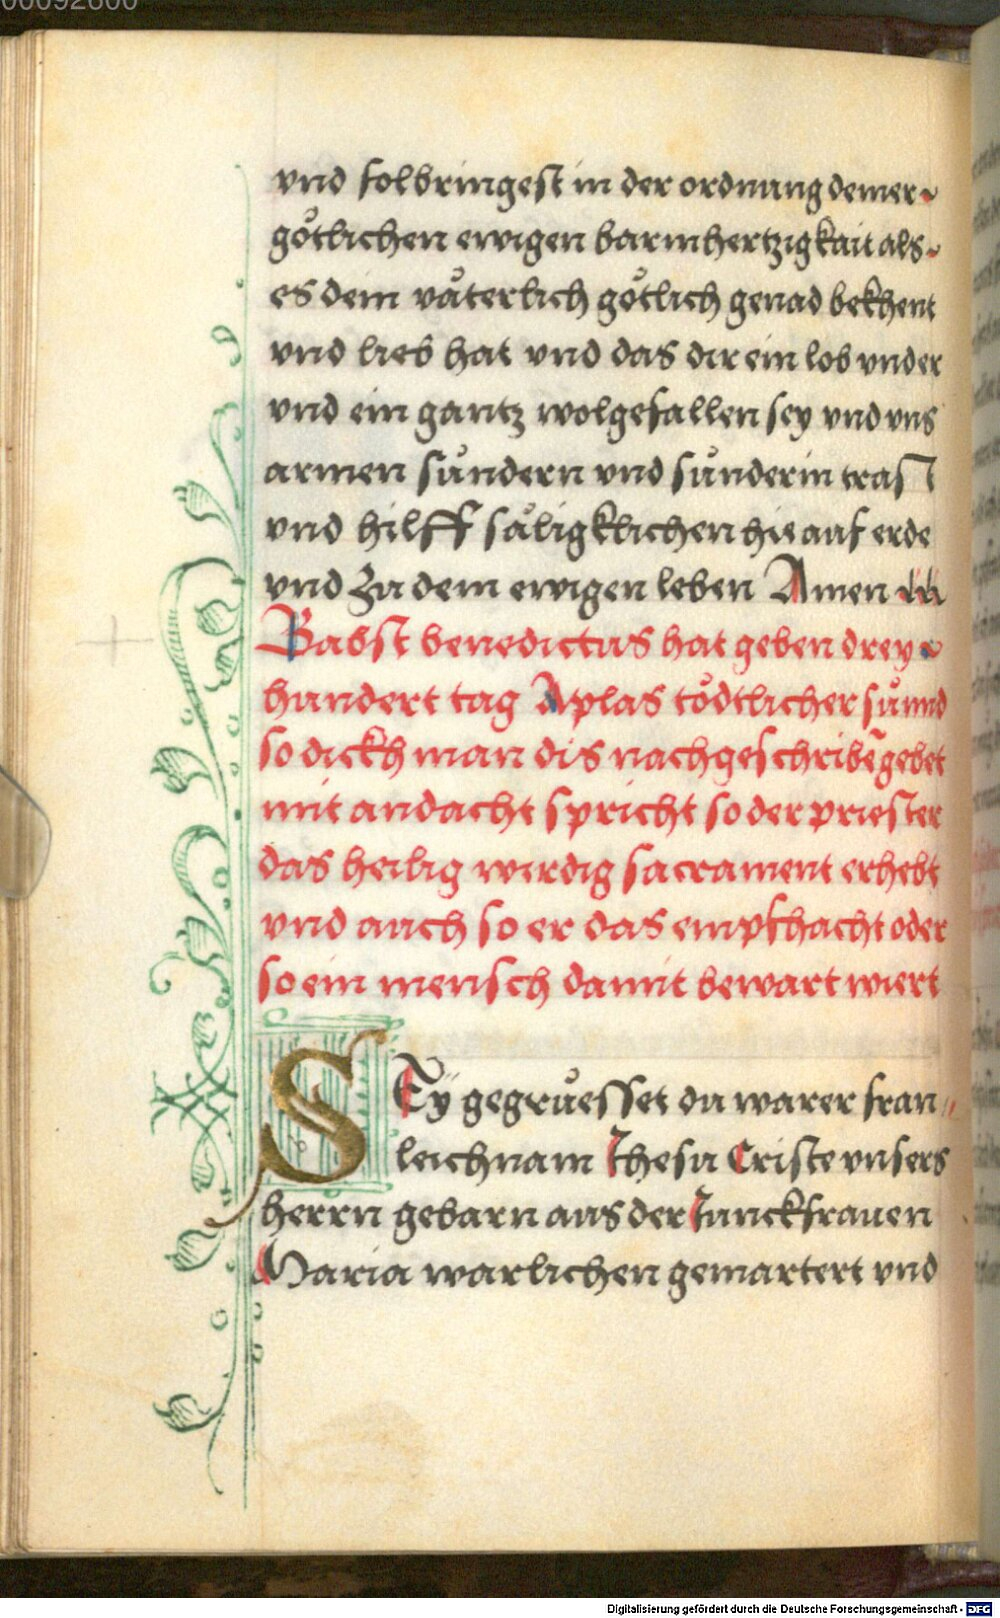 00092600
vnd folbringest in der ordnung deiner
götlichen ewigen barmhertzigkait als
es dein väterlich götlich genad bekhent
vnd lieb hat vnd das dir ein lob vnd er
vnd ein gantz wolgefallen sey vnd vns
armen sündern vnd sünderin trast
vnd hilff säligklichen hie auf erde
vnd Zu dem ewigen leben Amen
Babst benedictus hat geben drey
hundert tag Aplas tödtlicher sünnd
so dickh man dis nachgeschribē gebet
mit andacht spricht so der priester
das heilig wirdig sacrament erhebt
vnd auch so er das empfhacht oder
so ein mensch damit bewart wiert
SEy gegrüesset du warer fran
leichnam Ihesu Criste vnsers
herrn geborn aus der Iunckfrauen
Maria warlichen gemartert vnd
Digitalisierung gefördert durch die Deutsche Forschungsgemeinschaft - DFG